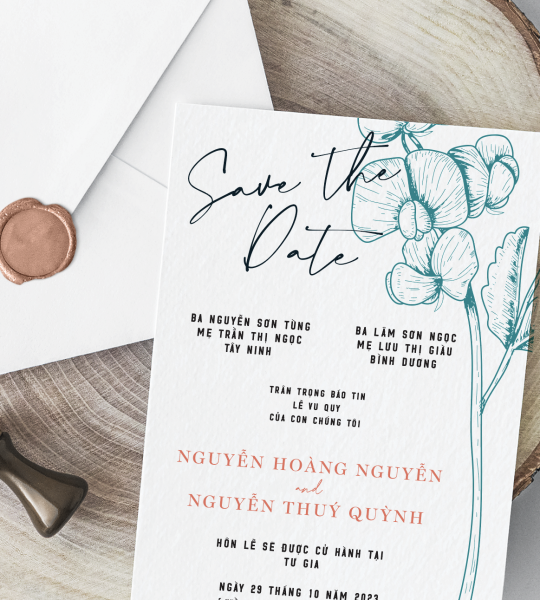 Save the
Date
BA NGUYÊN SƠN TÙNG
MẸ TRẦN THỊ NGỌC
TÂY NINH
BA LÂM SƠN NGỌC
MẸ LƯU THỊ GIÀU
BÌNH DƯƠNG
TRÂN TRỌNG BÁO TIN
LỄ VU QUY
CỦA CON CHÚNG TÔI
NGUYỄN HOÀNG NGUYÊN
and
NGUYỄN THUÝ QUỲNH
HÔN LỄ SẼ ĐƯỢC CỬ HÀNH TẠI
TƯ GIA
NGÀY 29 THÁNG 10 NĂM 2023